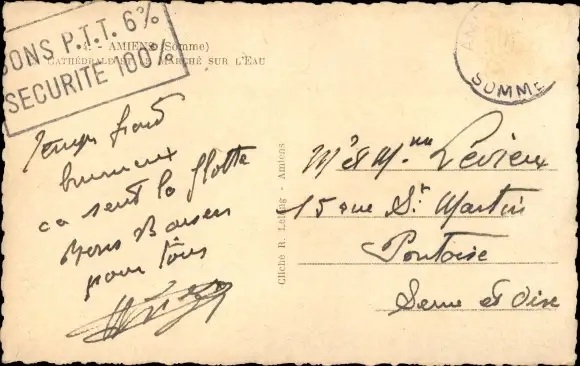 BONS P.T.T. 6%
SECURITE 100%
4. - AMIENS (Somme)
CATHÉDRALE ET LE MARCHÉ SUR L'EAU
SOMME
Temps froid
brumeux
ca sent la flotte
Bons Baisers
pour tous
Cliché R. Lelong - Amiens
Mr et Mme Levieux
15 rue St Martin
Pontoise
Seine et Oise